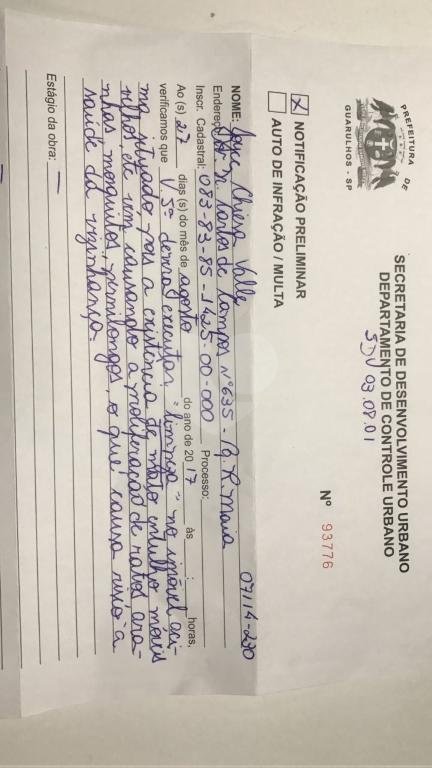 PREFEITURA DE
GUARULHOS - SP
SECRETARIA DE DESENVOLVIMENTO URBANO
DEPARTAMENTO DE CONTROLE URBANO
SDU 03.08.01
Nº 93776
X NOTIFICAÇÃO PRELIMINAR
AUTO DE INFRAÇÃO / MULTA
07114-230
NOME: Chiesa Valle
Endereço: de Campos Nº 635 - R. Maia
Inscr. Cadastral: 083-83-85-1425-00-000 Processo:
Ao (s) 27 dias (s) do mês de agosto do ano de 20 17 às : horas,
verificamos que V Sª deverá executar "limpeza" no imóvel aci-
ma situado pois a existência de mato, entulho, móveis
velhos, etc vem causando a proliferação de ratos, ara-
nhas mosquitos, pernilongos, o que causa risco à
saúde da vizinhança.
Estágio da obra: —